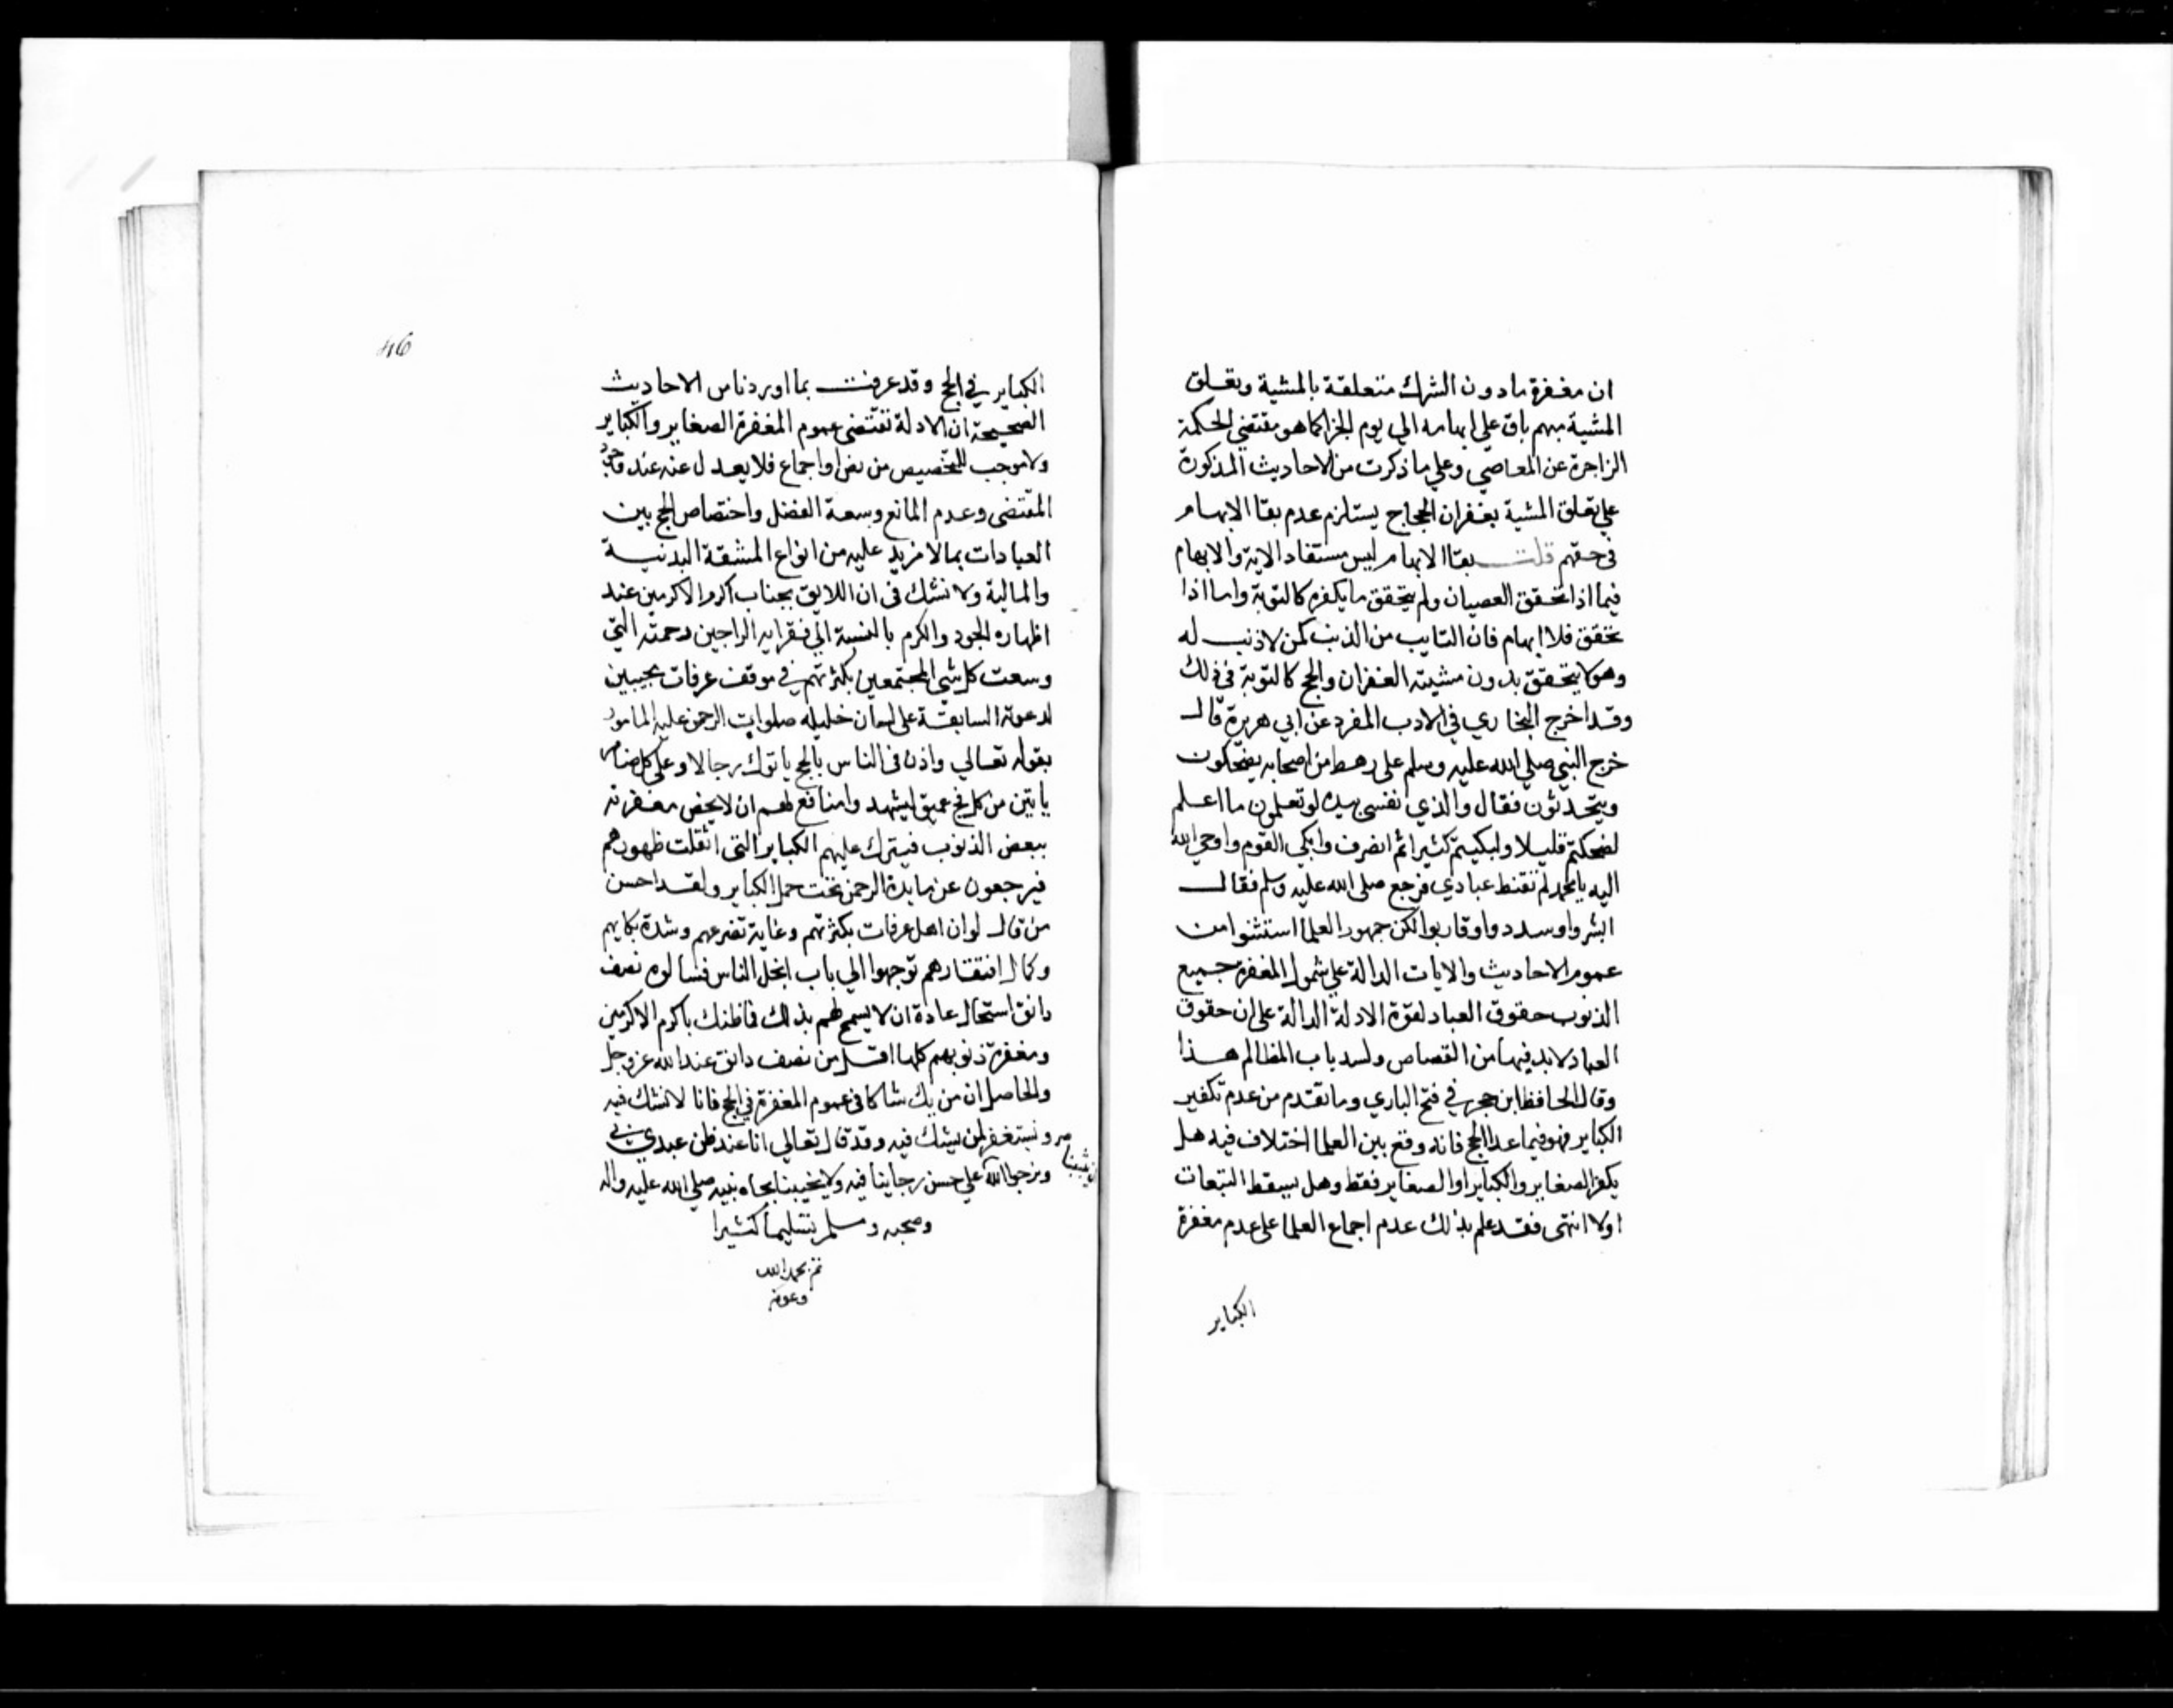 ان مغفرة مادون الشرك متعلقة بالمشية وتعلق
المشية مبهم باق علي ابهامه الي يوم الجزا كما هو مقتضي الحكمة
الزاجرة عن المعاصي وعلي ما ذكرت من الاحاديث المذكورة
علي تعلق المشية بغفران الحجاج يستلزم عدم بقا الابهام
في حقهم قلت بقا الابهام ليس مستفاد الاية والابهام
فيما اذا تحقق العصيان ولم يتحقق ما يكفره كالتوبة واما اذا
تحقق فلا ابهام فان التايب من الذنب كمن لا ذنب له
وهو لا يتحقق بدون مشيته الغفران والحج كالتوبة في ذلك
وقد اخرج البخاري في الادب المفرد عن ابي هريرة قال
خرج النبي صلي الله عليه وسلم علي رهط من اصحابه يضحكون
ويتحدثون فقال والذي نفسي بيده لو تعلمون ما اعلم
لضحكتم قليلا ولبكيتم كثيرا ثم انصرف وابكي القوم واوحي الله
اليه يا محمد لم تقنط عبادي فرجع صلي الله عليه وسلم فقال
ابشروا وسددوا وقاربوا لكن جمهور العلما استثنوا من
عموم الاحاديث والايات الدالة علي شمول المغفرة جميع
الذنوب حقوق العباد لقوة الادلة الدالة علي ان حقوق
العباد لابد فيها من القصاص ولسد باب المظالم هذا
وقال الحافظ ابن حجر في فتح الباري وما تقدم من عدم تكفير
الكباير فهو فيما عدا الحج فانه وقع بين العلما اختلاف فيه هل
يكفر الصغاير والكباير او الصغاير فقط وهل يسقط التبعات
اولا انتهى فقد علم بذلك عدم اجماع العلما علي عدم مغفرة
الكباير
46
الكباير في الحج وقد عرفت بما اوردنا من الاحاديث
الصحيحة ان الادلة تقتضي عموم المغفرة الصغاير والكباير
ولا موجب للتخصيص من نص او اجماع فلا يعدل عنه عند
المقتضى وعدم المانع وسعة الفضل واختصاص الحج بين
العبادات بما لا مزيد عليه من انواع المشقة البدنية
والمالية ولا نشك في ان اللايق بجناب اكرم الاكرمين عند
اظهاره الجود والكرم بالنسبة الي فقرايه الراجين رحمته التي
وسعت كل شي المجتمعين بكثرتهم في موقف عرفات مجيبين
لدعوته السابقة على لسان خليله صلوات الرحمن عليه المامور
بقوله تعالي واذن في الناس بالحج ياتوك رجالا وعلي كل ضامر
ياتين من كل فج عميق ليشهدوا منافع لهم ان لا يخص مغفرته
ببعض الذنوب فيترك عليهم الكباير التي اثقلت ظهورهم
فيرجعون عن مايدة الرحمن تحت حمل الكباير ولقد احسن
من قال لو ان اهل عرفات بكثرتهم وغاية تضرعهم وشدة بكايهم
وكمال افتقارهم توجهوا الي باب ابخل الناس فسالوه نصف
دانق استحال عادة ان لا يسمح لهم بذلك فما ظنك باكرم الاكرمين
ومغفرة ذنوبهم كلها اقل من نصف دانق عند الله عز وجل
والحاصل ان من يك شاكا في عموم المغفرة في الحج فانا لا نشك فيه
ونستغفر لمن يشك فيه وقد قال تعالي انا عند ظن عبدي بي
ونرجوا الله علي حسن رجاينا فيه ولا يخيبنا بجاه نبيه صلي الله عليه واله
وصحبه وسلم تسليما كثيرا
تم بحمد الله
وعونه